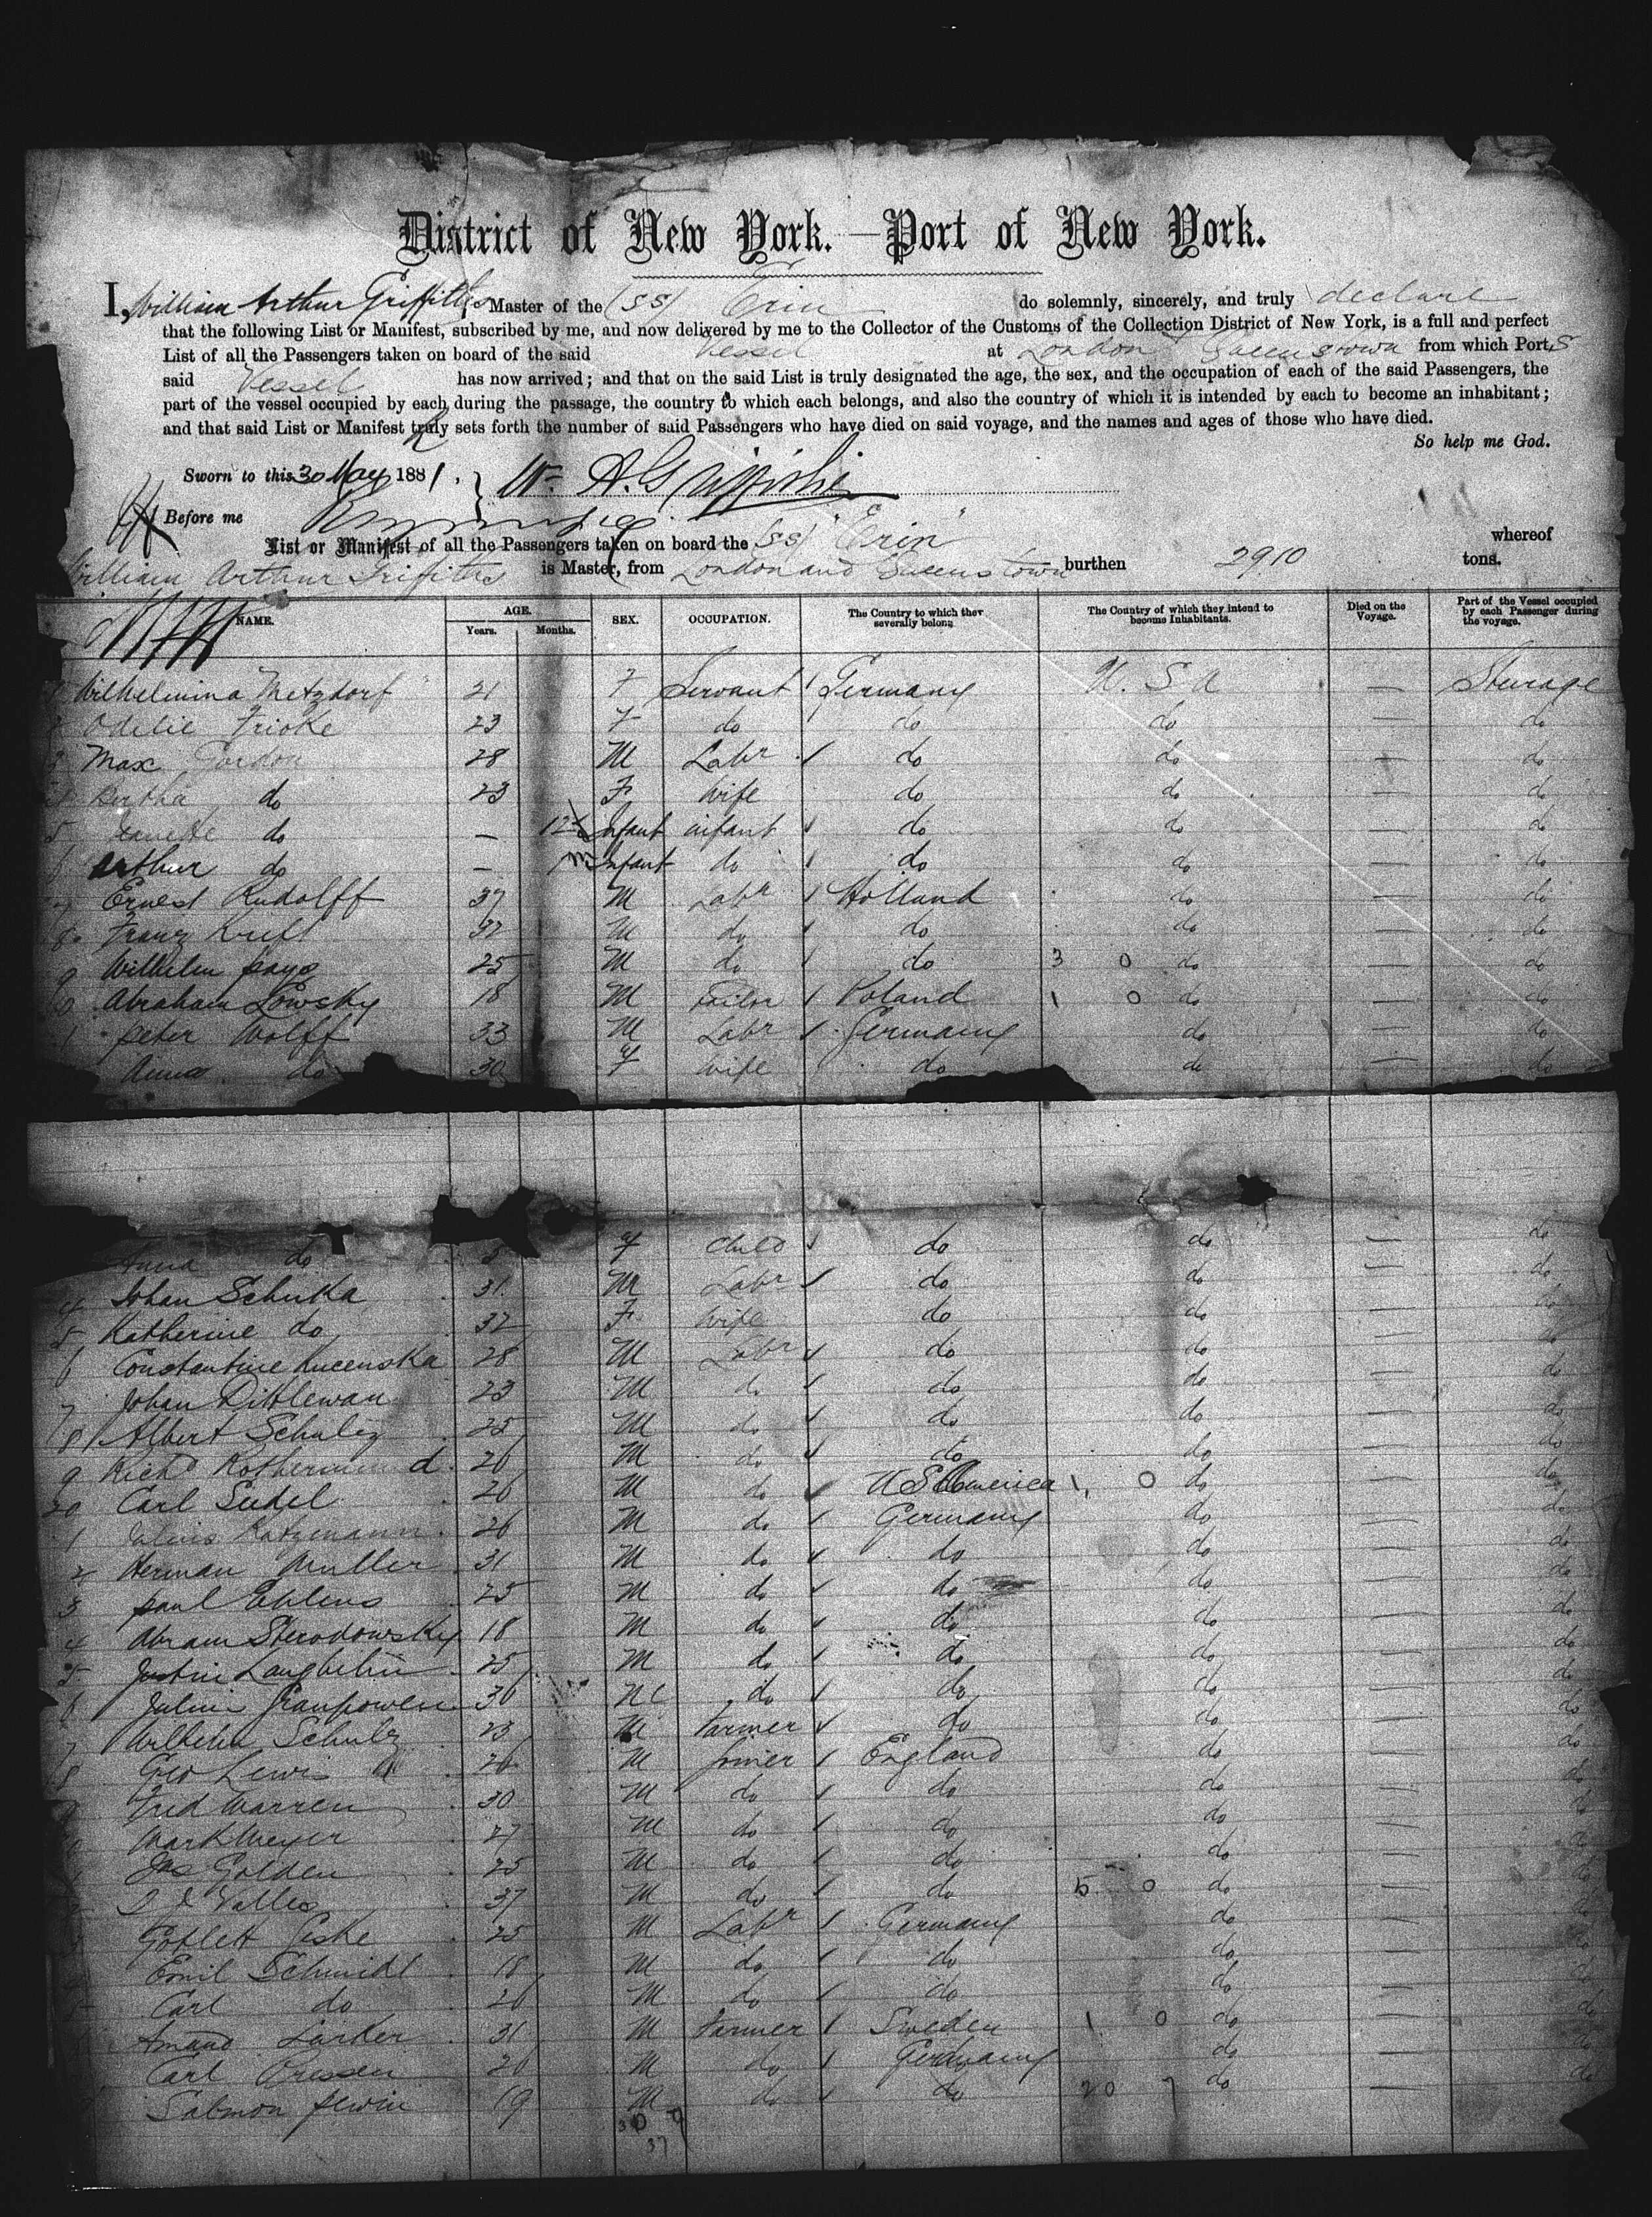 District of New York. — Port of New York.
I, William Arthur Griffiths Master of the (SS) Erin do solemnly, sincerely, and truly declare
that the following List or Manifest, subscribed by me, and now delivered by me to the Collector of the Customs of the Collection District of New York, is a full and perfect
List of all the Passengers taken on board of the said Vessel at London Queenstown from which Ports
said Vessel has now arrived; and that on the said List is truly designated the age, the sex, and the occupation of each of the said Passengers, the
part of the vessel occupied by each during the passage, the country to which each belongs, and also the country of which it is intended by each to become an inhabitant;
and that said List or Manifest truly sets forth the number of said Passengers who have died on said voyage, and the names and ages of those who have died.
So help me God.
Sworn to this 30 May 1881. Wm A. Griffiths
Before me
List or Manifest of all the Passengers taken on board the (SS) "Erin" whereof
William Arthur Griffiths is Master, from London and Queenstown burthen 2910 tons.
NAME. AGE. Years. Months. SEX. OCCUPATION. The Country to which they severally belong The Country of which they intend to become Inhabitants. Died on the Voyage. Part of the Vessel occupied by each Passenger during the voyage.
Wilhelmina Metzdorf 21 F Servant Germany U.S.A — Steerage
2 Odelie Fricke 23 F do do do — do
3 Max Gordon 28 M Labr do do — do
4 Bertha do 23 F Wife do do — do
5 do — Infant infant do do — do
6 Arthur do — Infant do do do — do
7 Ernest Rudolff 37 M Labr Holland do — do
8 Franz Kreft 32 M do do do — do
9 Wilhelm 25 M do do 3 0 do — do
0 Abraham Lowsky 18 M Tailor Poland 1 0 do — do
1 Peter Wolff 33 M Labr Germany do — do
Anna do 30 F Wife do do — do
Anna do 5 F Child do do — do
4 Johan Schuka 31 M Labr do do — do
5 Katherine do 32 F Wife do do — do
6 Constantine Kucenska 28 M Labr do do — do
7 Johan 23 M do do do — do
8 Albert Schulz 25 M do do do — do
9 Richd Rothermund 26 M do do do — do
20 Carl Seidel 26 M do U S America 1 0 do — do
1 Julius Katzmann 26 M do Germany do — do
2 Herman Muller 31 M do do do — do
3 Paul Ehlens 25 M do do do — do
4 Abram 18 M do do do — do
5 25 M do do do — do
6 Julius 36 M do do do — do
7 Wilhelm Schulz 23 M Farmer do do — do
8 Geo Lewis 26 M Joiner England do — do
9 Fred Warren 30 M do do do — do
Mark Meyer 27 M do do do — do
Jas Golden 25 M do do do — do
37 M do do 5 0 do — do
25 M Labr Germany do — do
Emil Schmidt 18 M do do do — do
5 Carl do 26 M do do do — do
Larker 31 M Farmer Sweden 1 0 do — do
Carl 26 M do Germany do — do
Salmon 19 M do do 20 7 do — do
30 7
37